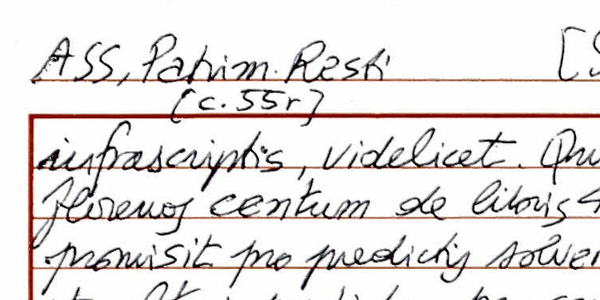 ASS, Patrim. Resti [S
[c. 55r]
infrascriptis, videlicet. Qui
florenos centum de libris 4
promisit pro predictis solve